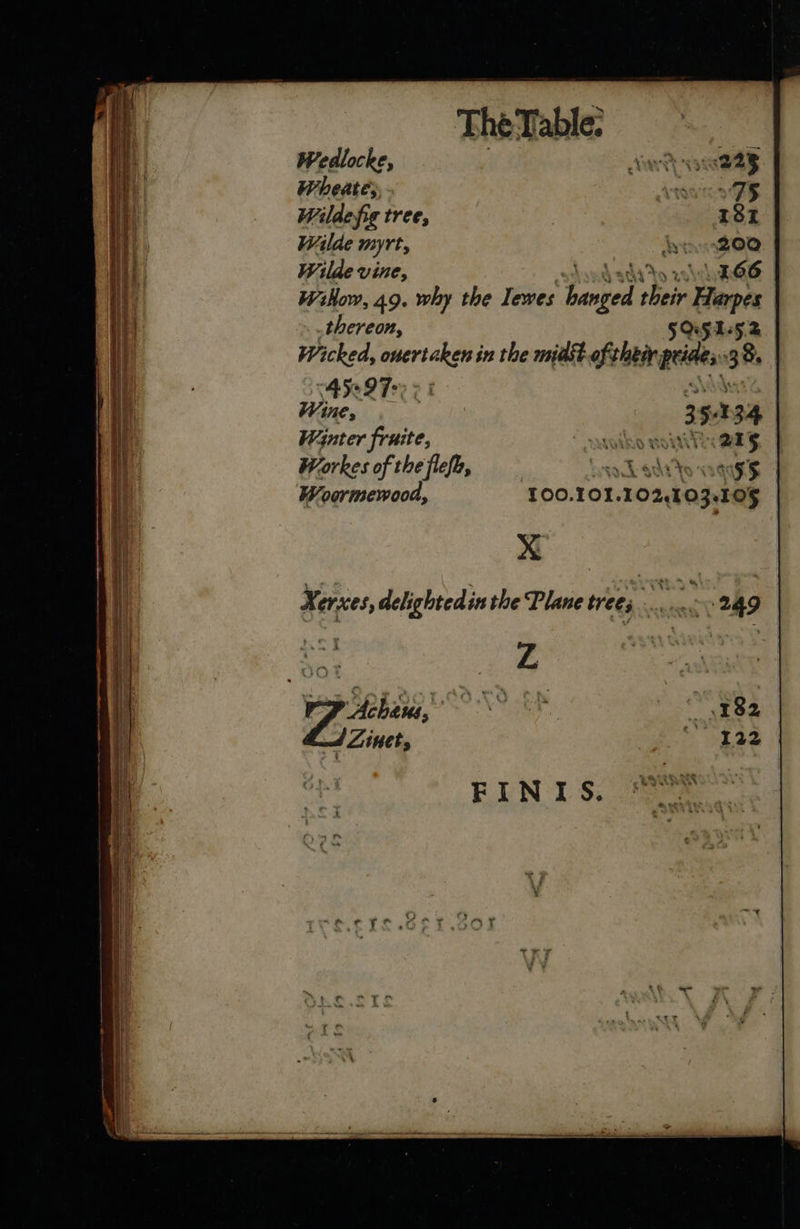 The Table.
Wedlocke, 225
Wheate, 75
Wilde fig tree, 181
Wilde myrt, 200
Wilde vine, 166
Willow, 49. why the Iewes hanged their Harpes
thereon, 50.51.52
Wicked, ouertaken in the midst of their pride, 38.
45.97.
Wine, 35.134
Winter fruite, 215
Workes of the flesh, 55
Woormewood, 100.101.102.103.105
X
Xerxes, delighted in the Plane tree, 249
Z
ZAcheus, 182
Zinet, 122
FINIS.